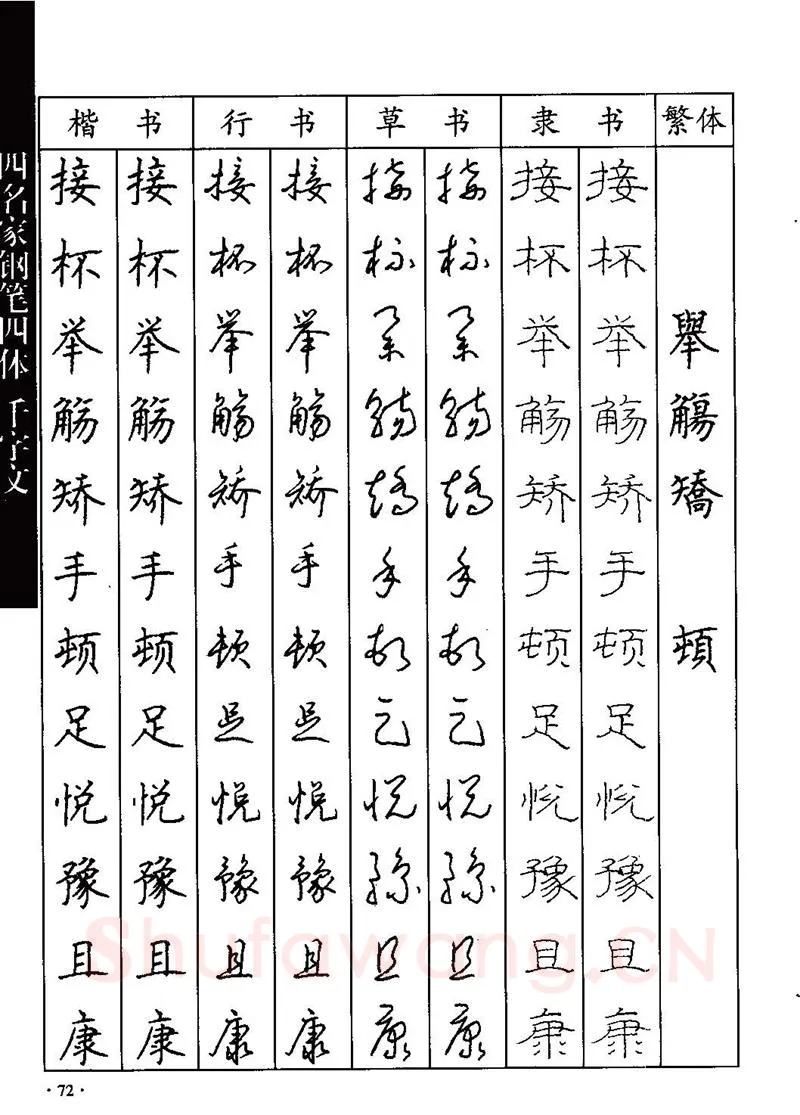 四名家钢笔四体 千字文
楷书 行书 草书 隶书 繁体
接 接 接 接 接 接 接 接
杯 杯 杯 杯 杯 杯 杯 杯
举 举 举 举 举 举 举 举 舉
觞 觞 觞 觞 觞 觞 觞 觞 觴
矫 矫 矫 矫 矫 矫 矫 矫 矯
手 手 手 手 手 手 手 手
顿 顿 顿 顿 顿 顿 顿 顿 頓
足 足 足 足 足 足 足 足
悦 悦 悦 悦 悦 悦 悦 悦
豫 豫 豫 豫 豫 豫 豫 豫
且 且 且 且 且 且 且 且
康 康 康 康 康 康 康 康
Shufawang.CN
·72·